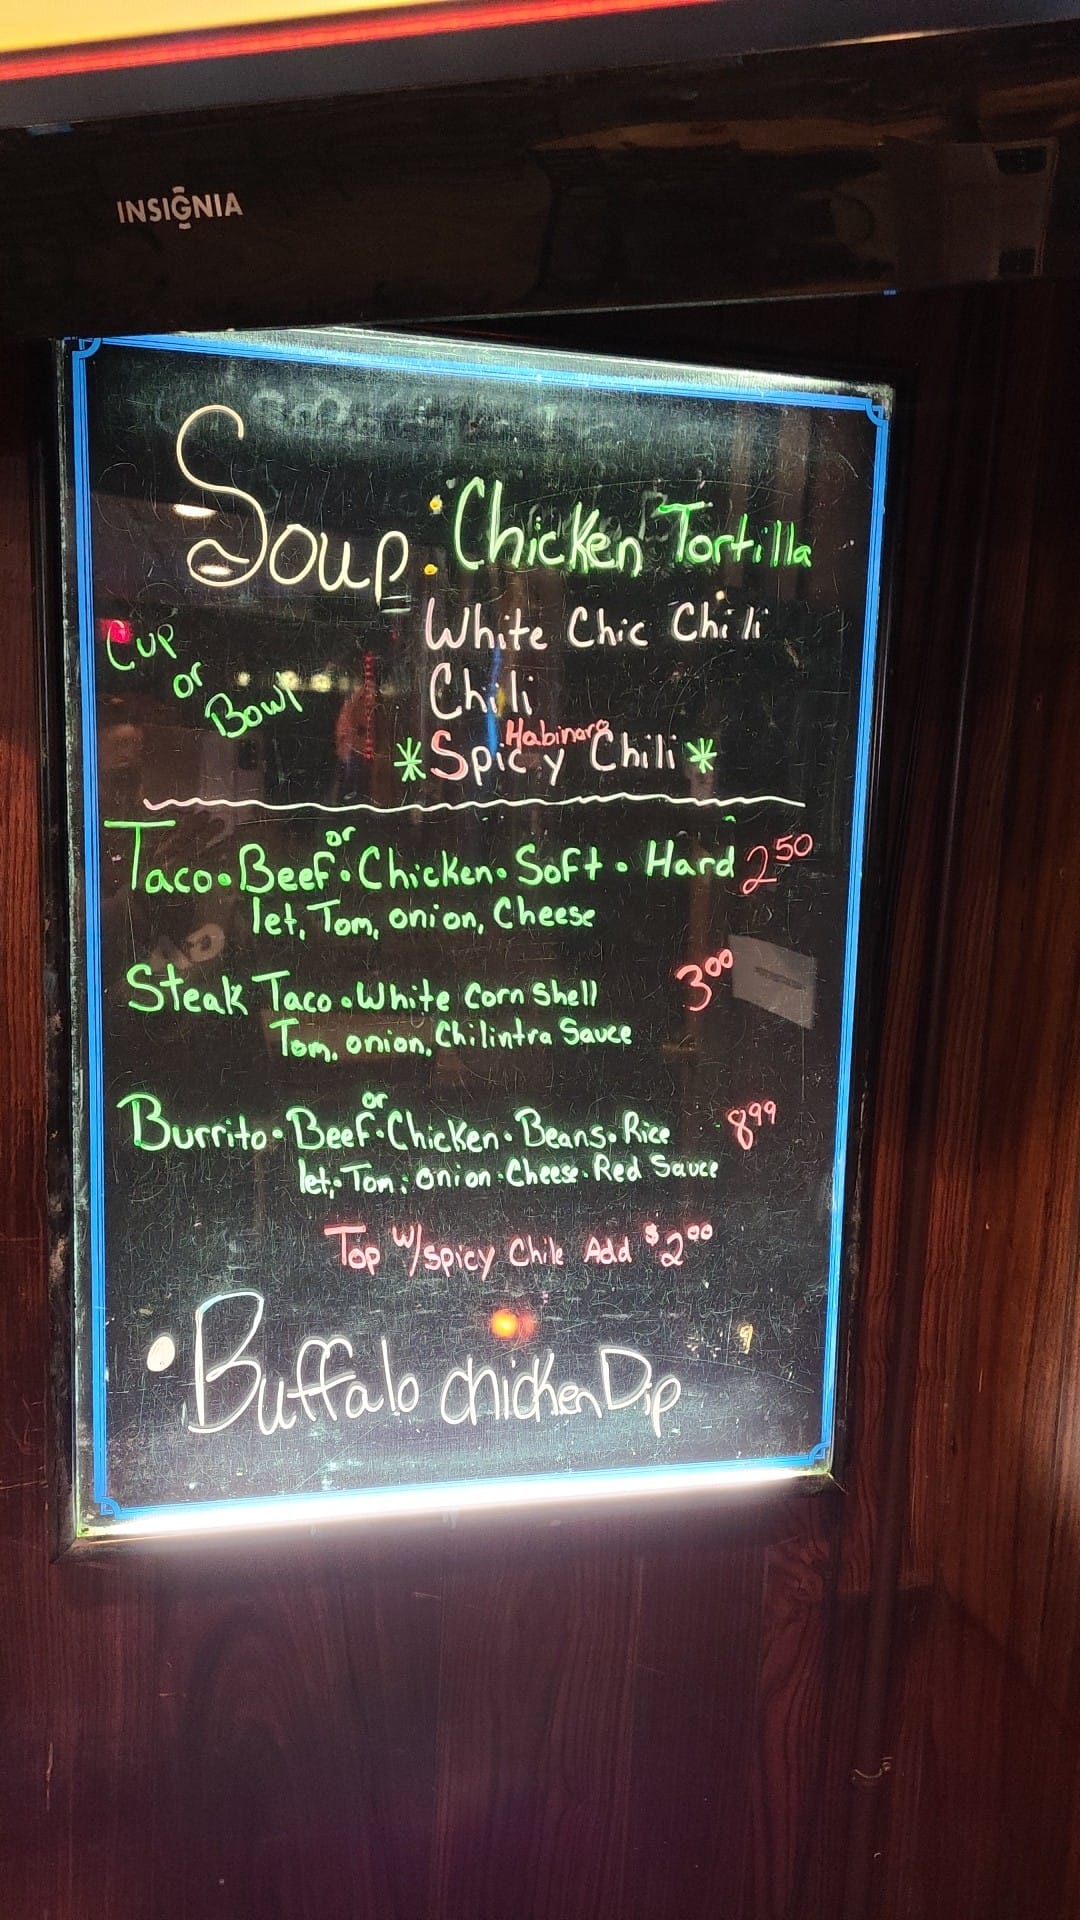 INSIGNIA
Soup : Chicken Tortilla
Cup or Bowl
White Chic Chili
Chili
Habinaro
*Spicy Chili*
Taco • Beef or • Chicken • Soft • Hard 2 50
let, Tom, onion, Cheese
Steak Taco • White Corn Shell 3 00
Tom, onion, Chilintra Sauce
Burrito • Beef or • Chicken • Beans • Rice 8 99
let, • Tom, • onion • Cheese • Red Sauce
Top w/ spicy Chile Add $2 00
• Buffalo chicken Dip